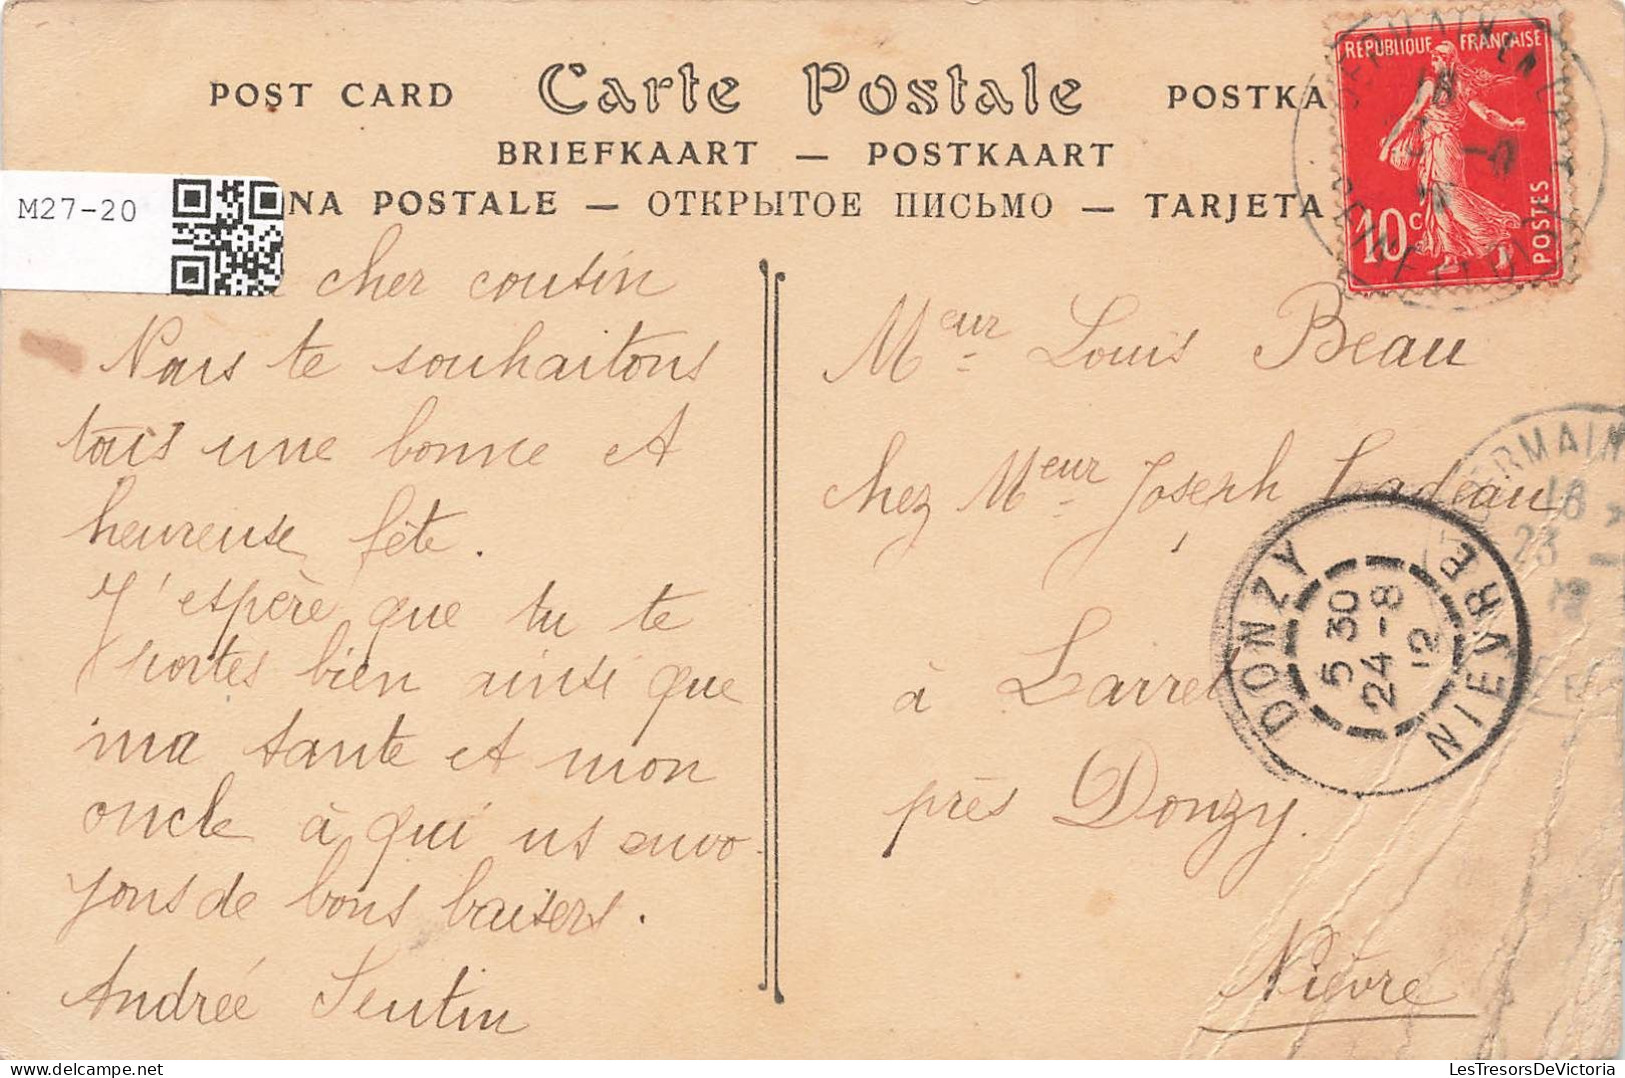 POST CARD Carte Postale POSTKA
BRIEFKAART — POSTKAART
NA POSTALE — ОТКРЫТОЕ ПИСЬМО — TARJETA
M27-20
REPUBLIQUE FRANÇAISE
10c POSTES
cher cousin
Nous te souhaitons
tous une bonne et
heureuse fête.
J'espère que tu te
portes bien ainsi que
ma tante et mon
oncle à qui ns envo-
yons de bons baisers.
Andrée Sentin
Meur Louis Beau
chez Meur Joseph Ladeau
à Larre
près Donzy.
Nièvre
DONZY
5 30
24 - 8
12
NIEVRE
GERMAIN
18
23
LesTresorsDeVictoria